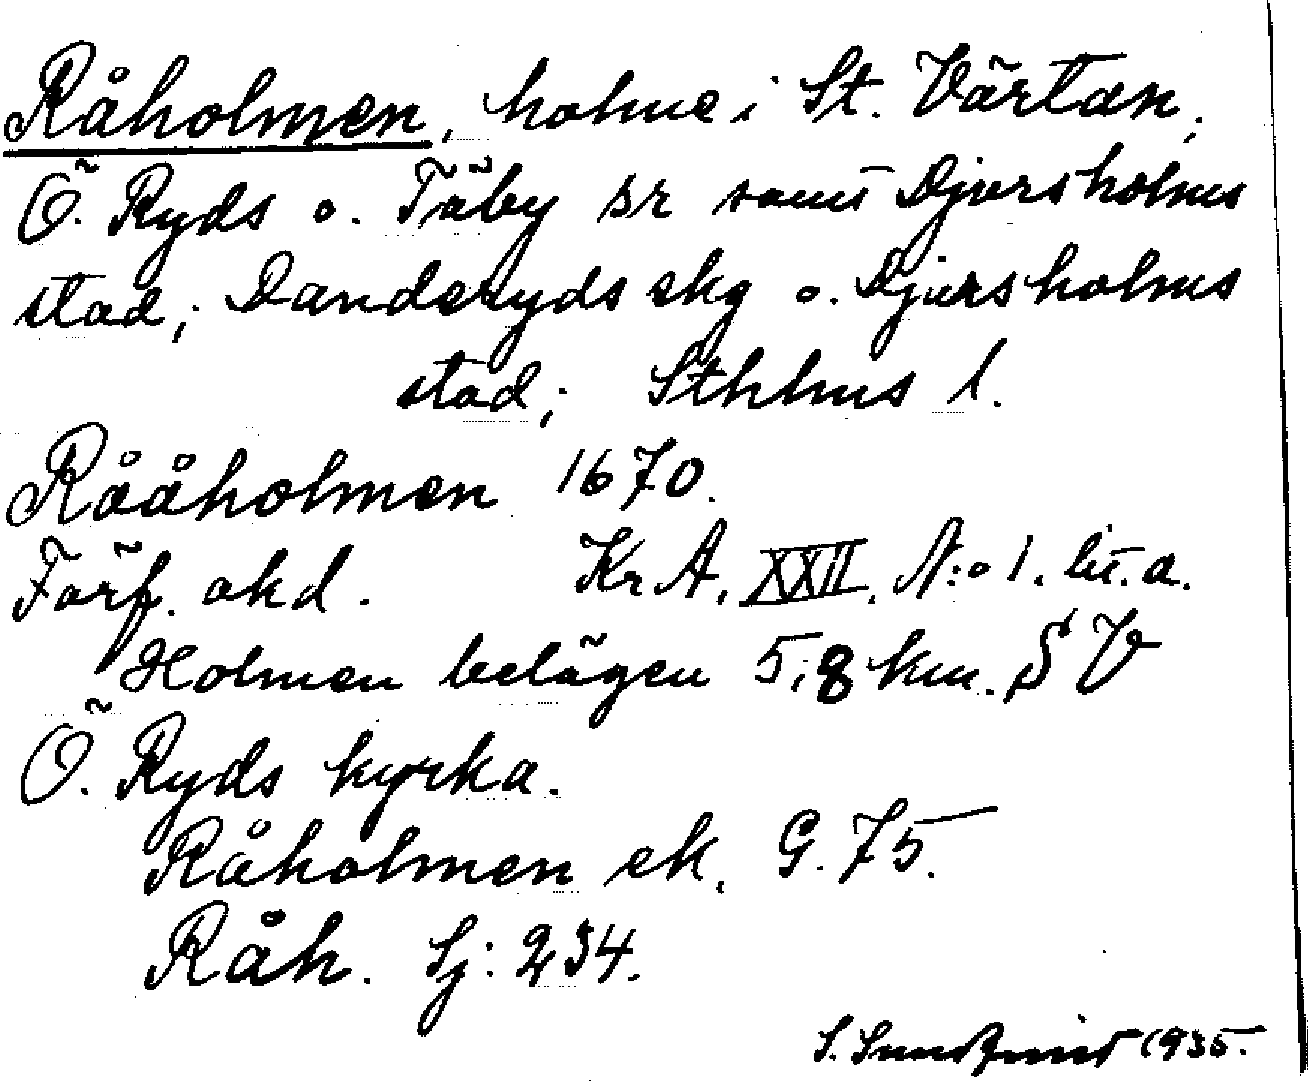 Råholmen, holme i St. Värtan,
Ö. Ryds o. Täby sr samt Djursholms
stad; Danderyds skg o. Djursholms
stad; Sthlms l.
Rååholmen 1670.
Förf. okd. Kr A. XXII. N:o 1. lit. a.
Holmen belägen 5,8 km. SV
Ö. Ryds kyrka.
Råholmen ek. G. 75.
Råh. Sj: 234.
S. Sundqvist 1935.